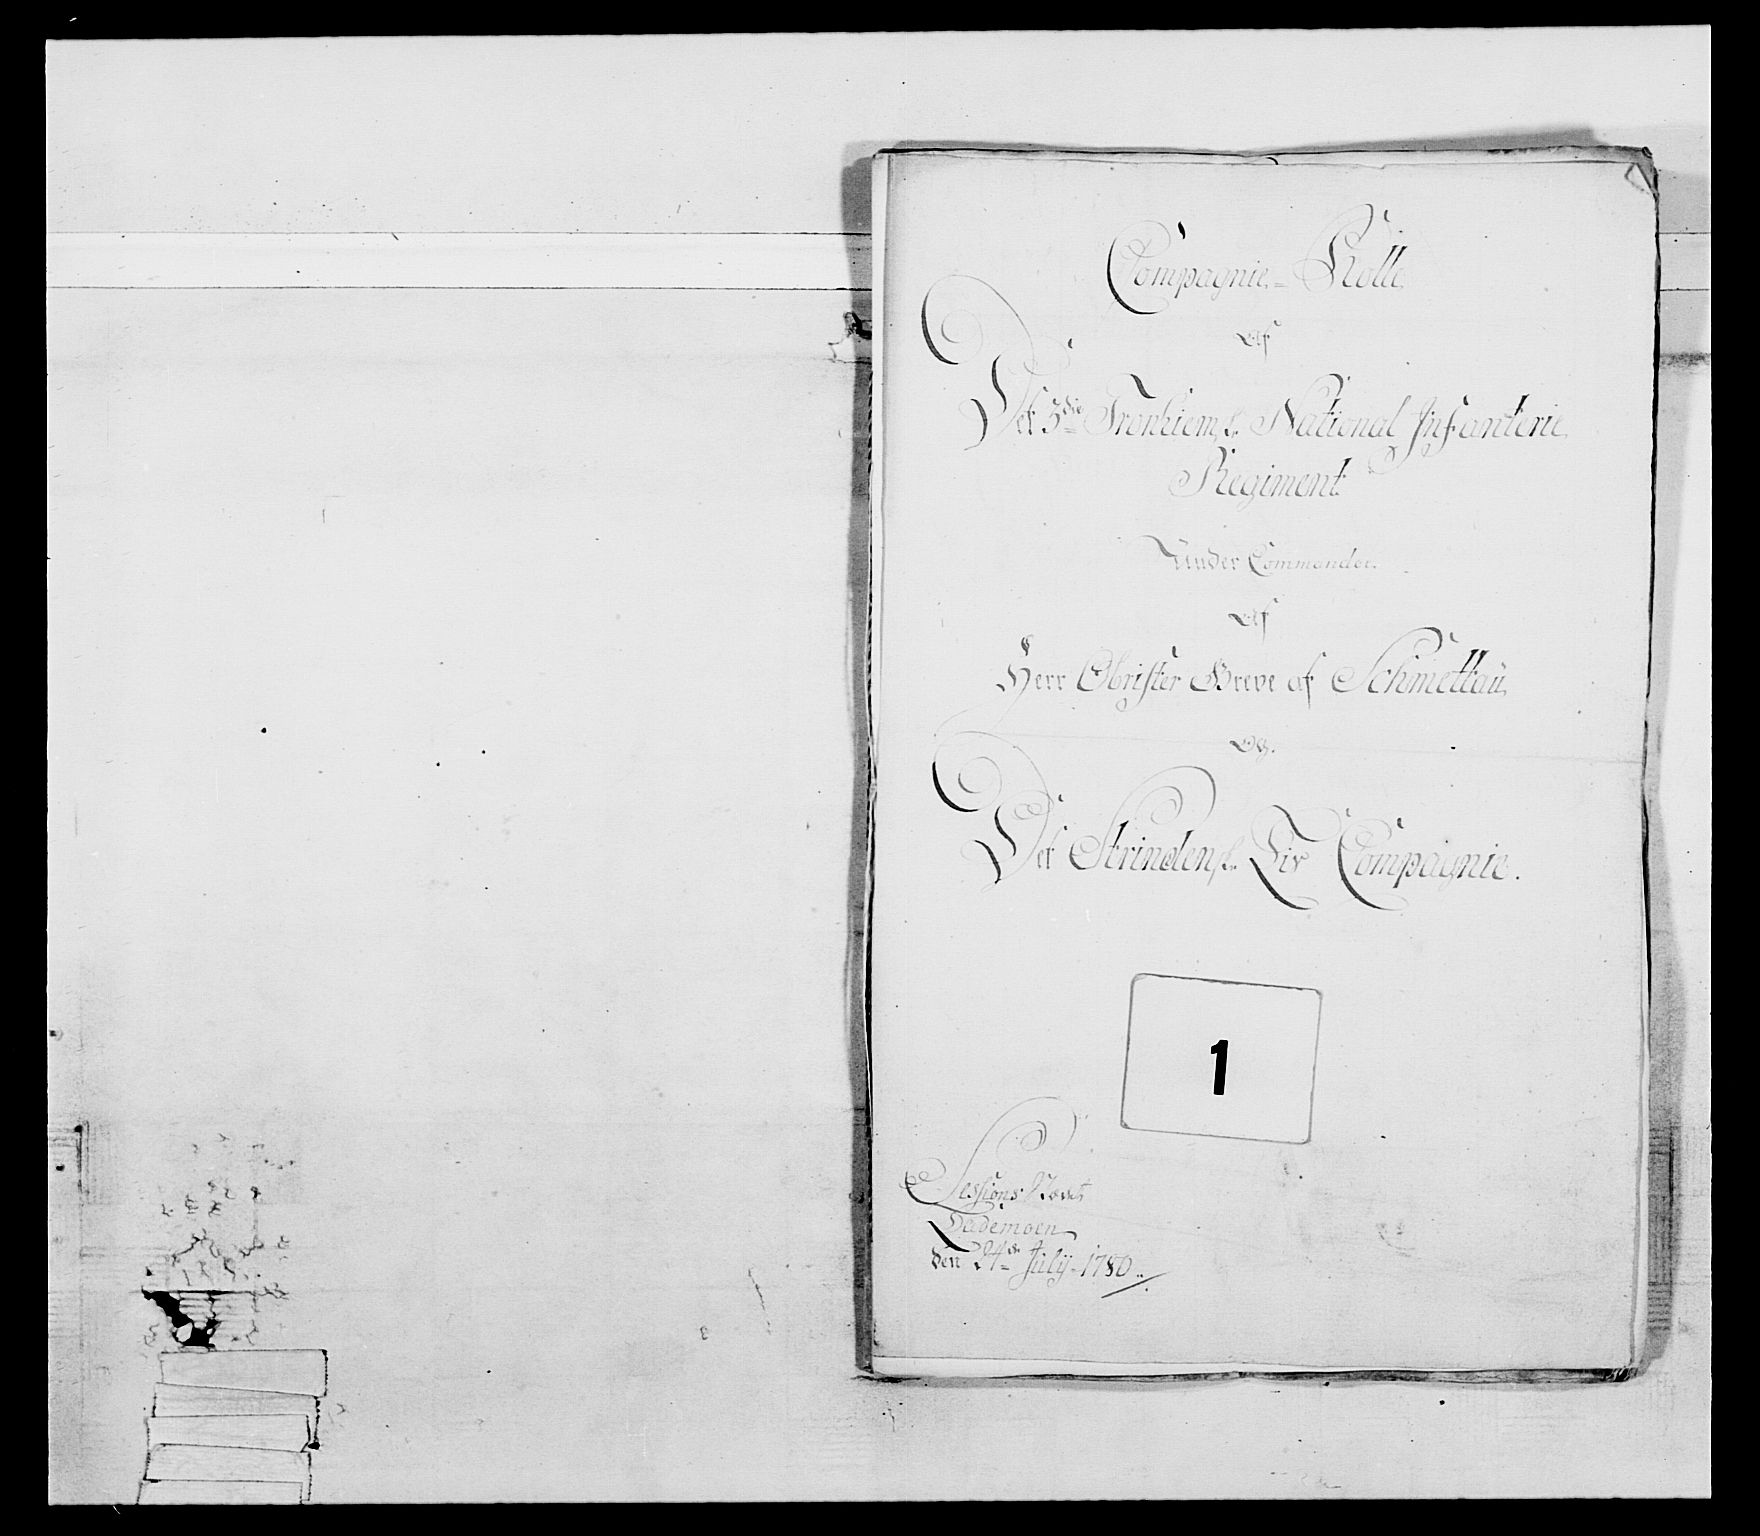 Compagnie-Rolle
af
Det 3die Tronhiemsk. National Infanterie
Regiment
Under Commando.
Af
Herr Obrister Greve af Schmettau
Og.
Det Strindensk. Liv Compagnie.
1
Sessions
Lademoen
den 24de July 1780.